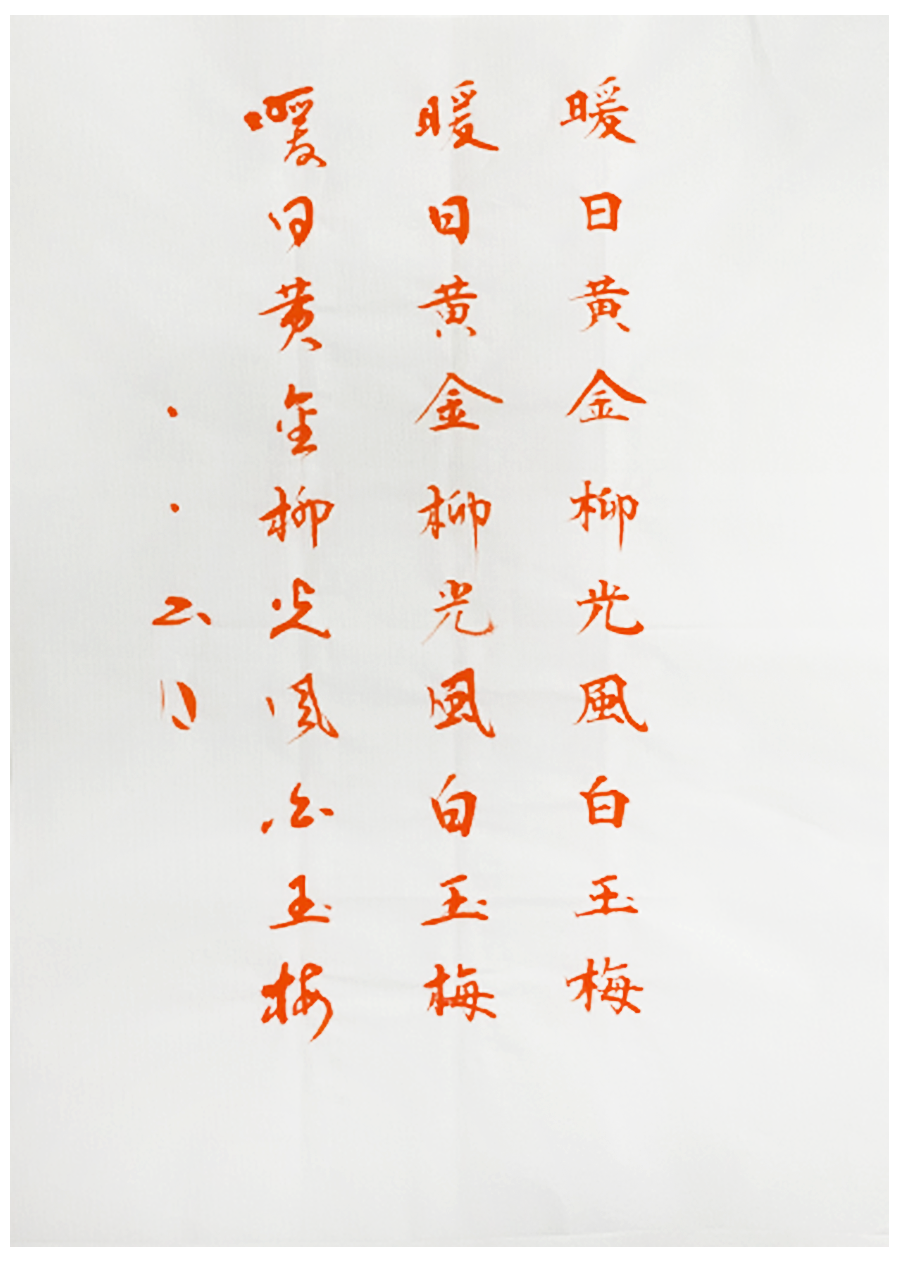 暖日黄金柳光風白玉梅
暖日黄金柳光風白玉梅
暖日黄金柳光風白玉梅